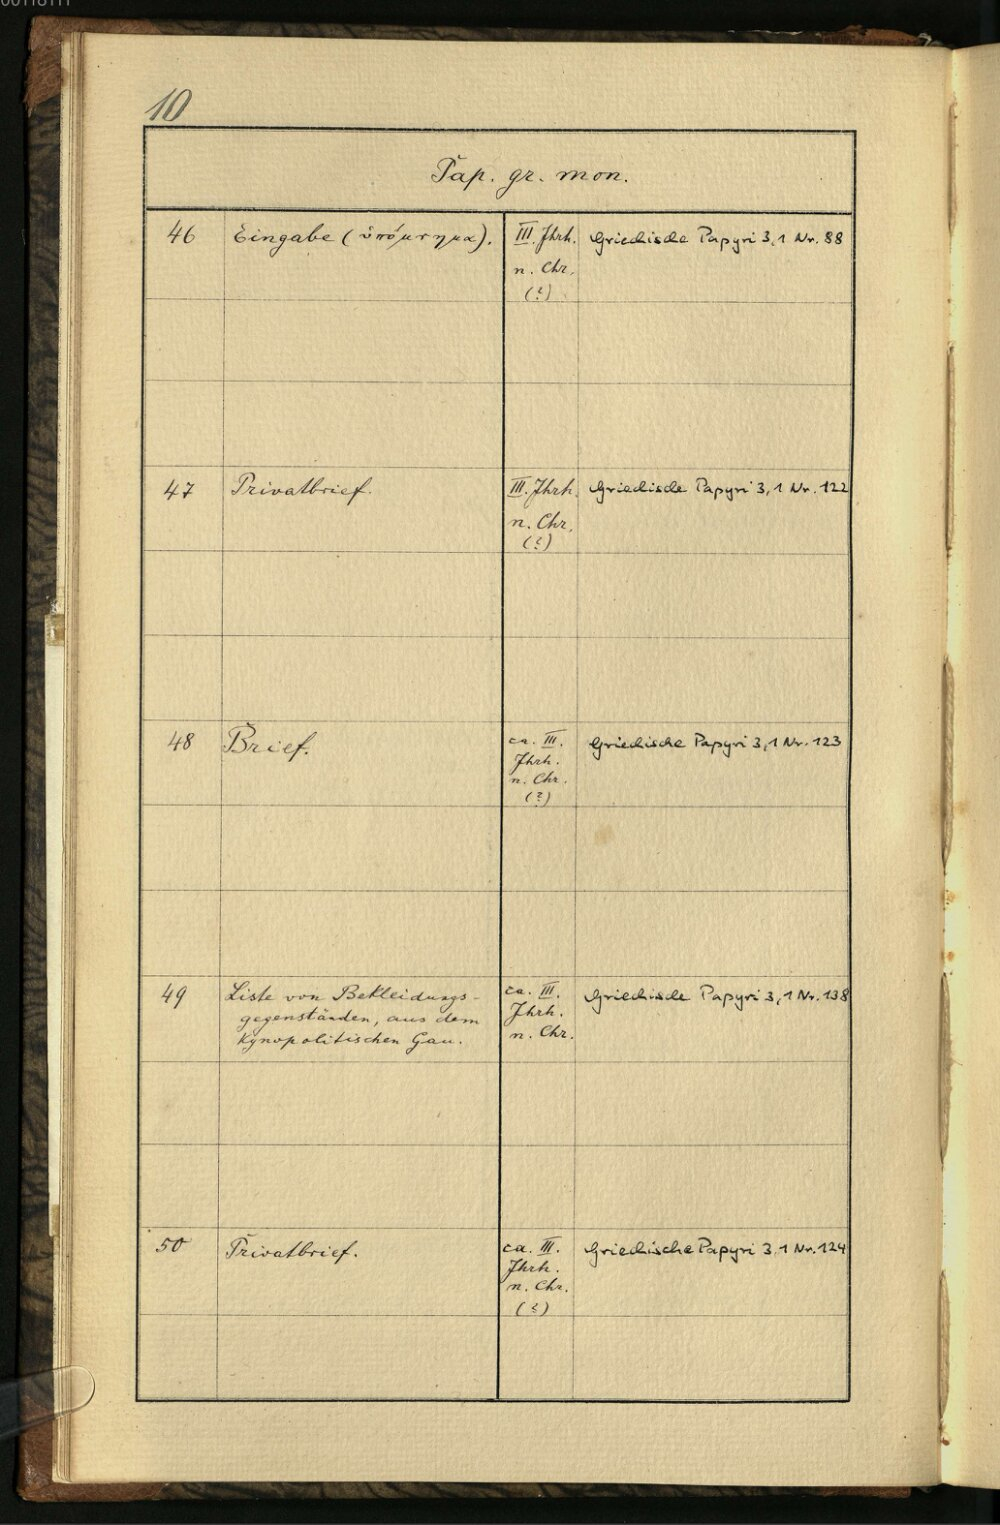 00118111
10
Pap. gr. mon.
46 Eingabe (ὑπόμνημα). III. Jhrh. Griechische Papyri 3,1 Nr. 88
n. Chr.
(?)
47 Privatbrief. III. Jhrh. Griechische Papyri 3,1 Nr. 122
n. Chr.
(?)
48 Brief. ca. III. Griechische Papyri 3,1 Nr. 123
Jhrh.
n. Chr.
(?)
49 Liste von Bekleidungs- ca. III. Griechische Papyri 3,1 Nr. 138
gegenständen, aus dem Jhrh.
Kynopolitischen Gau. n. Chr.
50 Privatbrief. ca. III. Griechische Papyri 3,1 Nr. 124
Jhrh.
n. Chr.
(?)